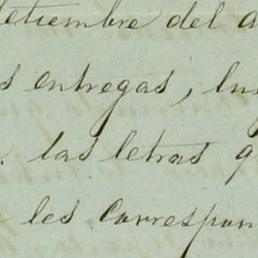 setiembre del a
s entregas, lu
. las letras q
les correspon